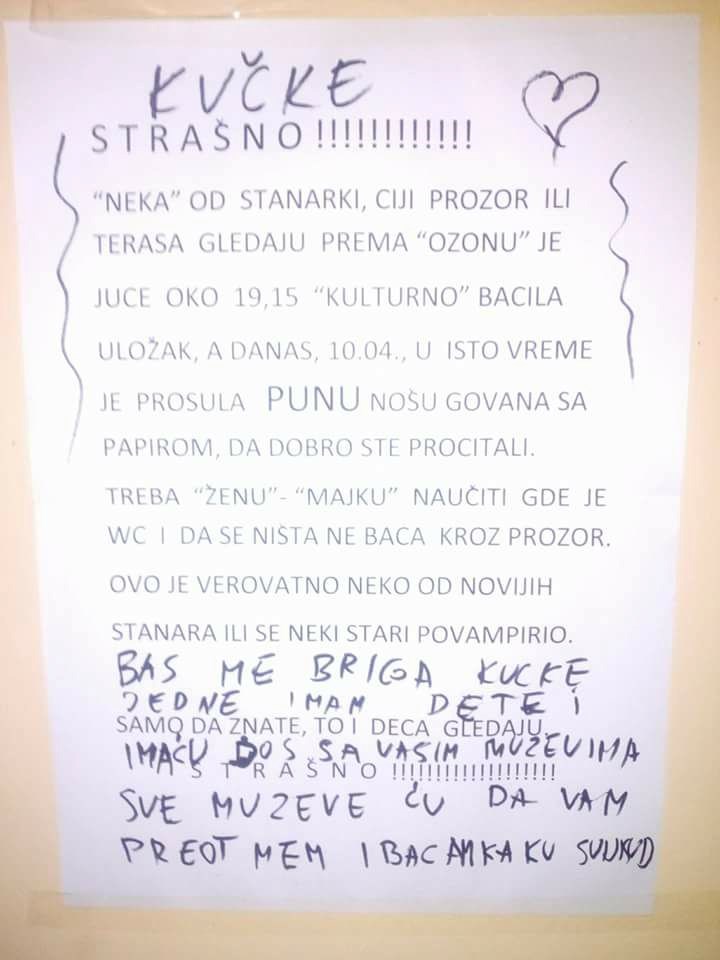 KUČKE
STRAŠNO!!!!!!!!!!!!
“NEKA” OD STANARKI, CIJI PROZOR ILI
TERASA GLEDAJU PREMA “OZONU” JE
JUCE OKO 19,15 “KULTURNO” BACILA
ULOŽAK, A DANAS, 10.04., U ISTO VREME
JE PROSULA PUNU NOŠU GOVANA SA
PAPIROM, DA DOBRO STE PROCITALI.
TREBA “ŽENU”- “MAJKU” NAUČITI GDE JE
WC I DA SE NIŠTA NE BACA KROZ PROZOR.
OVO JE VEROVATNO NEKO OD NOVIJIH
STANARA ILI SE NEKI STARI POVAMPIRIO.
BAS ME BRIGA KUCKE
JEDNE IMAM DETE I
SAMO DA ZNATE, TO I DECA GLEDAJU.
IMAĆU JOS SA VASIM MUZEVIMA
S T R A Š N O !!!!!!!!!!!!!!!!!!!
SVE MUZEVE ĆU DA VAM
PREOTMEM I BACAM KAKU SVUKUD